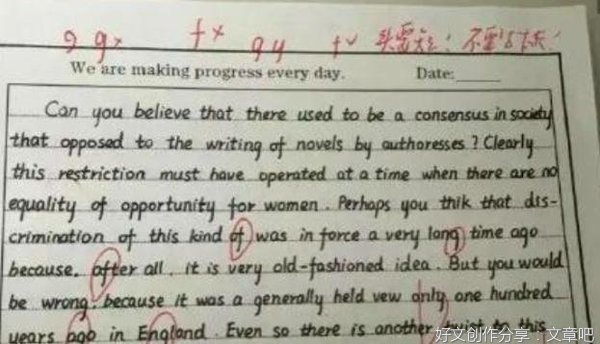 g g× f× g y f✓ 头要短！不要
We are making progress every day. Date:
Can you believe that there used to be a consensus in society
that opposed to the writing of novels by authoresses? Clearly
this restriction must have operated at a time when there are no
equality of opportunity for women. Perhaps you thik that dis-
crimination of this kind of was in force a very long time ago
because, after all, it is very old-fashioned idea. But you would
be wrong because it was a generally held vew only one hundred
years ago in England. Even so there is another twist to this
好文创作分享:文章吧